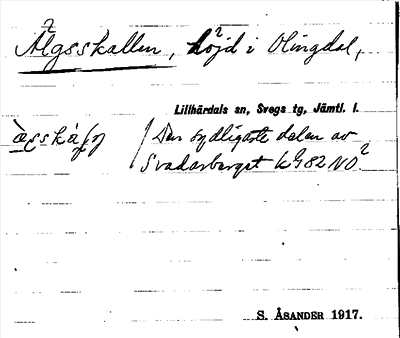 Älgsskallen, höjd i Olingdal,
Lillhärdals sn, Svegs tg, Jämtl. l.
Den sydligaste delen av
Svadarberget
S. ÅSANDER 1917.